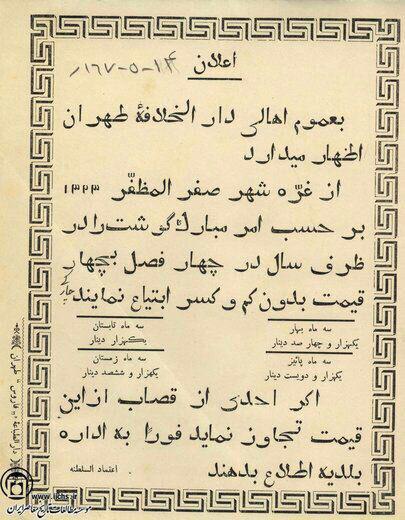 اعلان
۱۶۷-۵-۱۴
بعموم اهالی دار الخلافهٔ طهران
اظهار میدارد
از غرّه شهر صفر المظفّر ۱۳۲۳
بر حسب امر مبارک گوشت را در
ظرف سال در چهار فصل بچهار
قیمت بدون کم و کسر ابتیاع نمایند
سه ماه بهار
یکهزار و چهار صد دینار
سه ماه تابستان
یکهزار دینار
سه ماه پائیز
یکهزار و دویست دینار
سه ماه زمستان
یکهزار و ششصد دینار
اکر احدی از قصاب ازاین
قیمت تجاوز نماید فوراً به اداره
بلدیه اطلاع بدهند
اعتماد السلطنه
www.iichs.ir
موسسه مطالعات تاریخ معاصر ایران